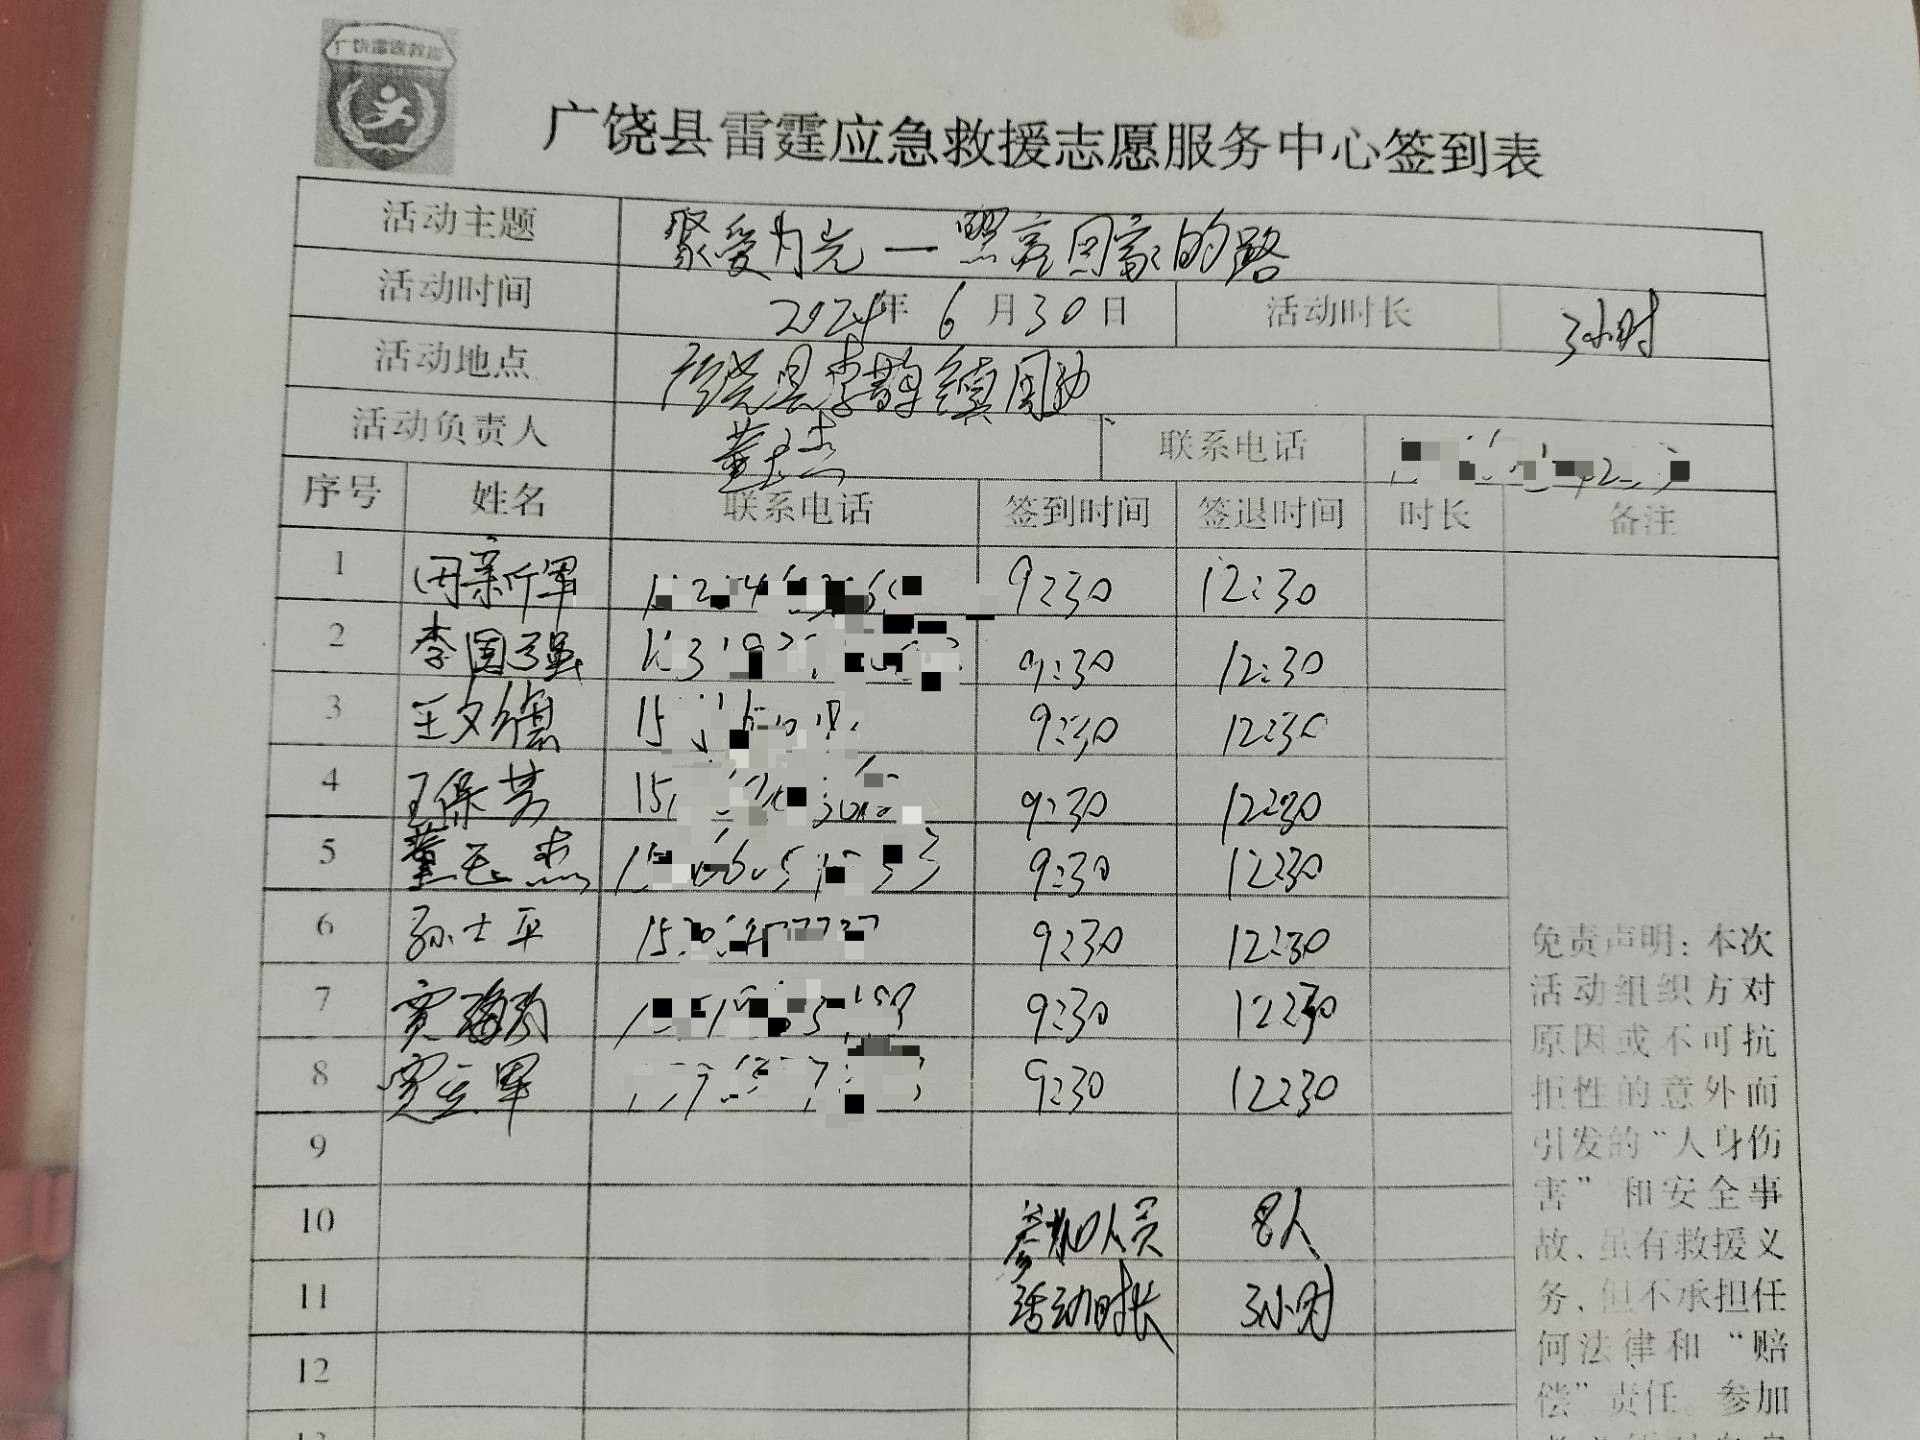 广饶雷霆救援
广饶县雷霆应急救援志愿服务中心签到表
活动主题 聚爱为光一照亮回家的路
活动时间 2024年 6 月 30 日 活动时长 3小时
活动地点 广饶县李鹊镇周边
活动负责人 董玉杰 联系电话
序号 姓名 联系电话 签到时间 签退时间 时长 备注
1 田新军 9:30 12:30
2 李国强 9:30 12:30
3 王文德 9:30 12:30
4 王保芳 9:30 12:30
5 董玉杰 9:30 12:30
6 孙士平 9:30 12:30
7 贾海 9:30 12:30
8 贾立军 9:30 12:30
9
10 参加人员 8人
11 活动时长 3小时
12
免责声明：本次
活动组织方对
原因或不可抗
拒性的意外而
引发的“人身伤
害”和安全事
故、虽有救援义
务、但不承担任
何法律和“赔
偿”责任。参加